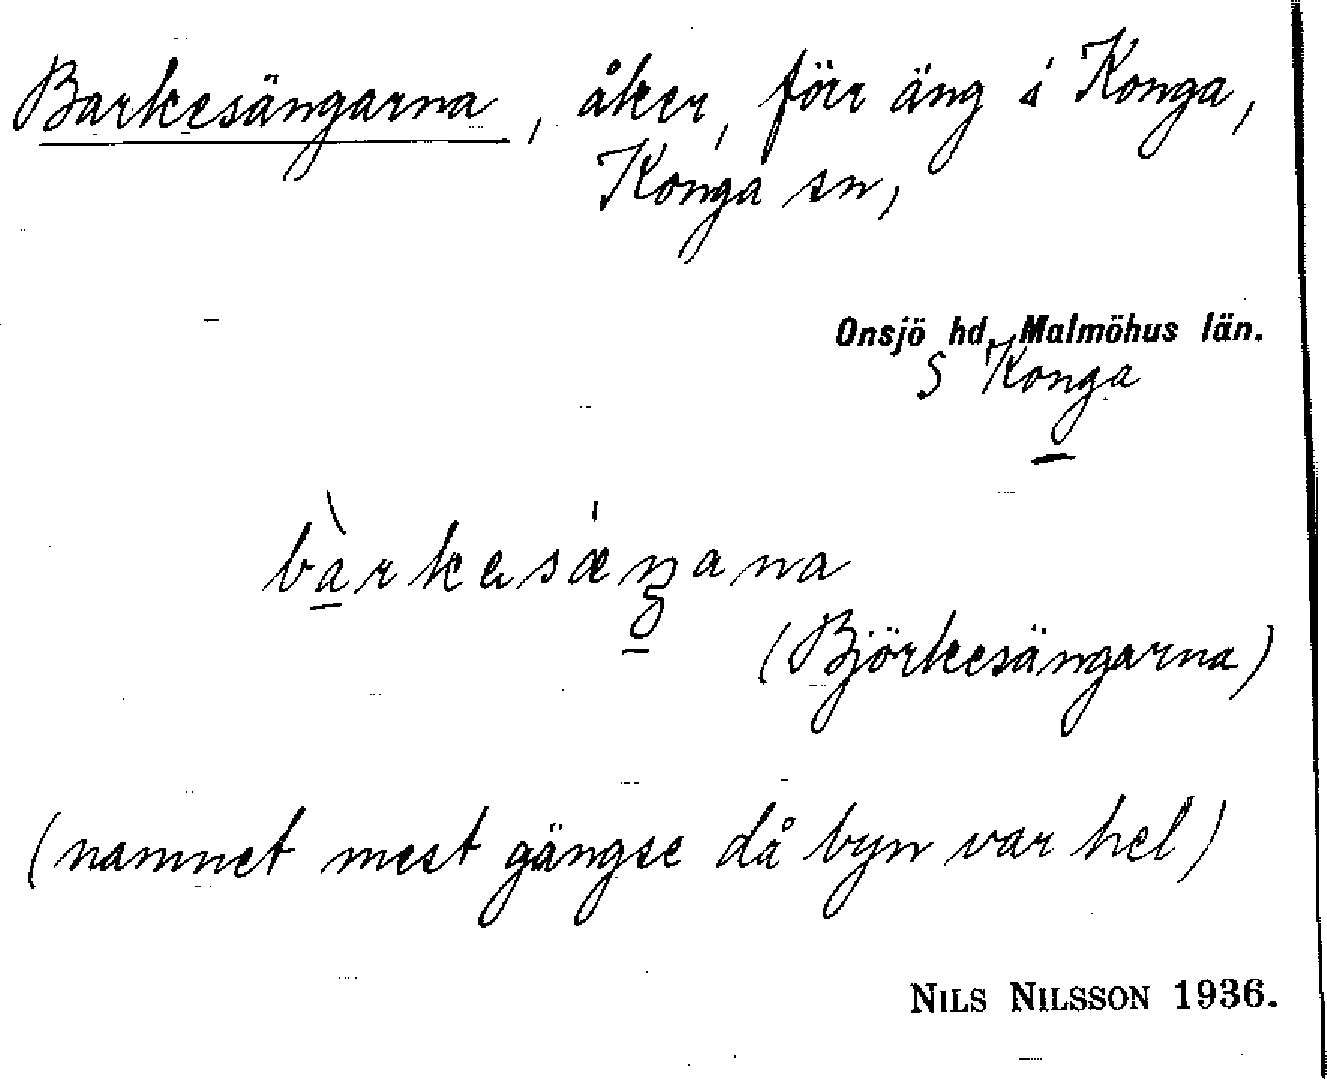 Barkesängarna, åker, förr äng i Konga,
Konga sn,
Onsjö hd, Malmöhus län.
S Konga
bàrkesæ̍ŋana
(Björkesängarna)
(namnet mest gängse då byn var hel)
NILS NILSSON 1936.